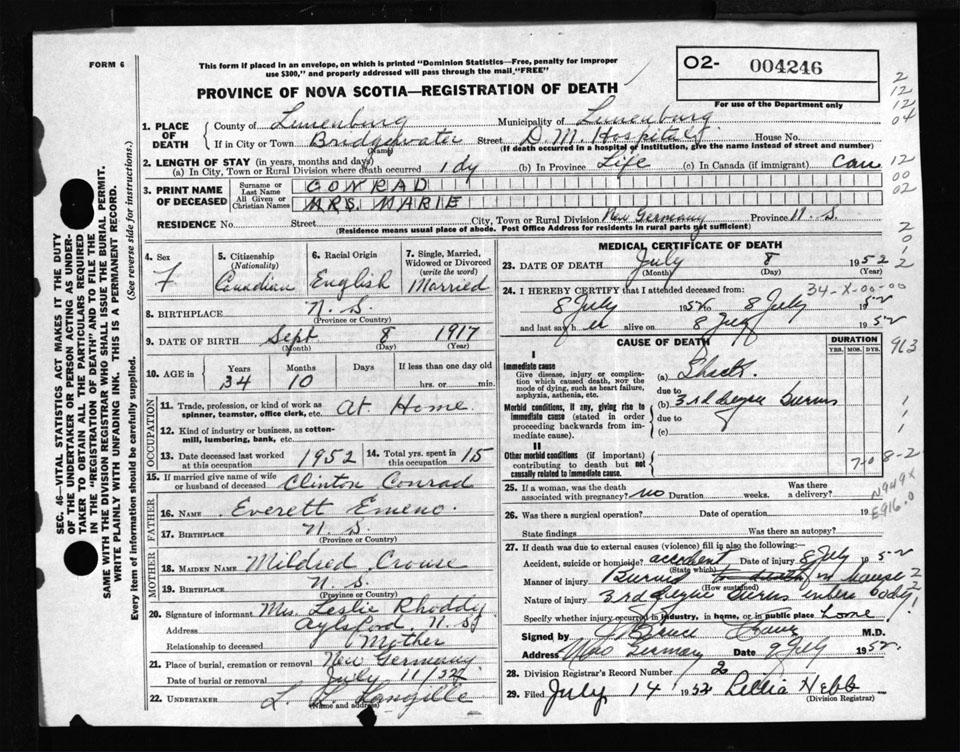 FORM 6
This form if placed in an envelope, on which is printed "Dominion Statistics—Free, penalty for improper
use $300," and properly addressed will pass through the mail "FREE"
O2- 004246
PROVINCE OF NOVA SCOTIA—REGISTRATION OF DEATH
For use of the Department only
2
12
12
04
1. PLACE OF DEATH
County of Lunenburg Municipality of Lunenburg
If in City or Town Bridgewater Street D. M. Hospital House No.
(Name) (If death occurred in a hospital or institution, give the name instead of street and number)
2. LENGTH OF STAY (in years, months and days)
(a) In City, Town or Rural Division where death occurred 1 dy (b) In Province Life (c) In Canada (if immigrant) Can
12
00
02
3. PRINT NAME OF DECEASED
Surname or Last Name CONRAD
All Given or Christian Names MRS. MARIE
RESIDENCE No. Street City, Town or Rural Division New Germany Province N. S.
(Residence means usual place of abode. Post Office Address for residents in rural parts not sufficient)
4. Sex F
5. Citizenship (Nationality) Canadian
6. Racial Origin English
7. Single, Married, Widowed or Divorced (write the word) Married
8. BIRTHPLACE N. S.
(Province or Country)
9. DATE OF BIRTH Sept 8 1917
(Month) (Day) (Year)
10. AGE in Years 34 Months 10 Days If less than one day old hrs. or min.
OCCUPATION
11. Trade, profession, or kind of work as spinner, teamster, office clerk, etc. At Home
12. Kind of industry or business, as cotton-mill, lumbering, bank, etc.
13. Date deceased last worked at this occupation 1952
14. Total yrs. spent in this occupation 15
15. If married give name of wife or husband of deceased Clinton Conrad
FATHER
16. NAME Everett Emeno
17. BIRTHPLACE N. S.
(Province or Country)
MOTHER
18. MAIDEN NAME Mildred Crouse
19. BIRTHPLACE N. S.
(Province or Country)
20. Signature of informant Mrs. Leslie Rhoddy
Address Aylsford, N. S.
Relationship to deceased Mother
21. Place of burial, cremation or removal New Germany
Date of burial or removal July 11/52
22. UNDERTAKER L. Langille
(Name and address)
MEDICAL CERTIFICATE OF DEATH
23. DATE OF DEATH July 8 1952
(Month) (Day) (Year)
2
0
1
2
24. I HEREBY CERTIFY that I attended deceased from: 34-X-00-00
8 July 1952 to 8 July 1952
and last saw her alive on 8 July 1952
CAUSE OF DEATH
DURATION
YRS. MOS. DYS.
913
I
Immediate cause
Give disease, injury or complication which caused death, NOT the mode of dying, such as heart failure, asphyxia, asthenia, etc.
(a) Shock.
due to
Morbid conditions, if any, giving rise to immediate cause (stated in order proceeding backwards from immediate cause).
(b) 3rd degree Burns
due to
(c)
1
1
II
Other morbid conditions (if important) contributing to death but not causally related to immediate cause.
7-0 8-2
25. If a woman, was the death associated with pregnancy? no Duration weeks. Was there a delivery?
N949X
E916.0
26. Was there a surgical operation? Date of operation 19
State findings Was there an autopsy?
27. If death was due to external causes (violence) fill in also the following:—
Accident, suicide or homicide? accident Date of injury 8 July 1952
(State which)
Manner of injury Burned in house
(How sustained)
2
Nature of injury 3rd degree Burns entire body
2
Specify whether injury occurred in industry, in home, or in public place home
1
Signed by M.D.
Address New Germany Date 9 July 1952
28. Division Registrar's Record Number 2
29. Filed July 14 1952 Lellia Hebb
(Division Registrar)
SEC. 46—VITAL STATISTICS ACT MAKES IT THE DUTY
OF THE UNDERTAKER OR PERSON ACTING AS UNDER-
TAKER TO OBTAIN ALL THE PARTICULARS REQUIRED
IN THE "REGISTRATION OF DEATH" AND TO FILE THE
SAME WITH THE DIVISION REGISTRAR WHO SHALL ISSUE THE BURIAL PERMIT.
WRITE PLAINLY WITH UNFADING INK. THIS IS A PERMANENT RECORD.
Every item of information should be carefully supplied. (See reverse side for instructions.)